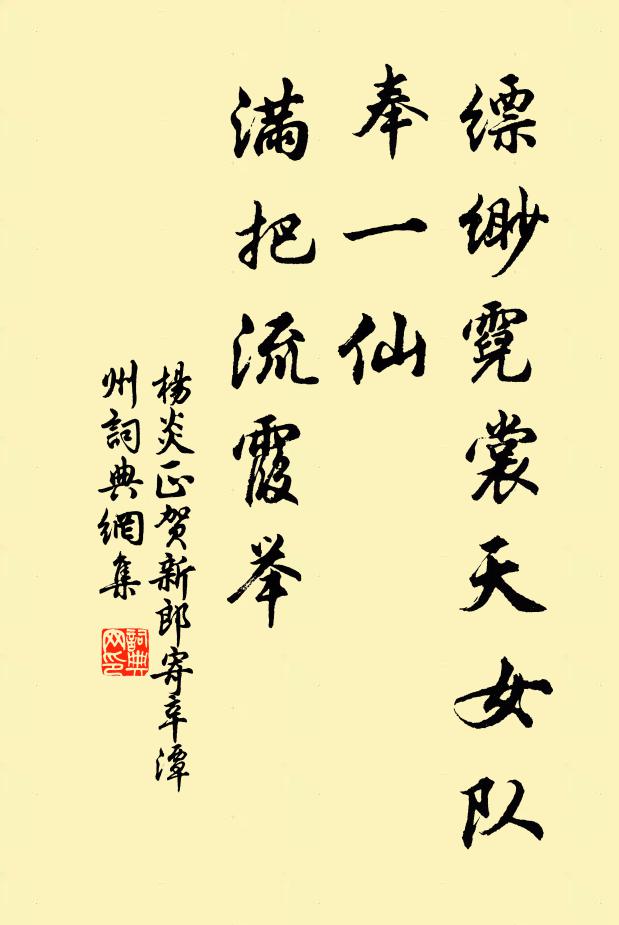 缥缈霓裳天女队
奉一仙
满把流霞举
楊炎正贺新郎寄辛潭
州詞典網集
詞典
网印